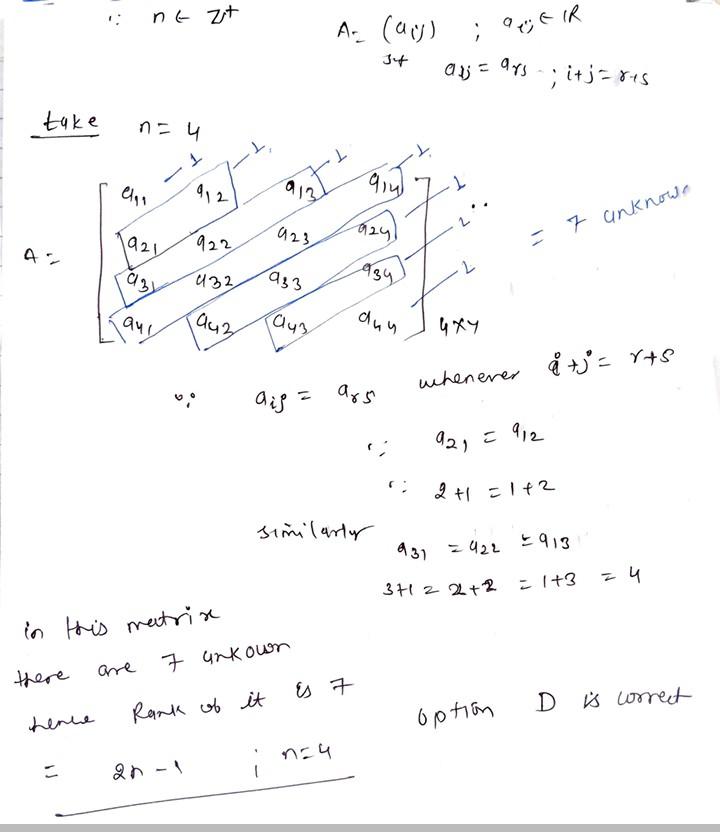 ∵ n ∈ Z+
A = (aij) ; aij ∈ IR
st aij = ars ; i+j = r+s
take n = 4
1 1. 1 1.
a11 a12 a13 a14 1
a21 a22 a23 a24 1
A = = 7 unknow
a31 a32 a33 a34 1
a41 a42 a43 a44 4×4
∵ aij = ars whenever i+j = r+s
∵ a21 = a12
∵ 2+1 = 1+2
similarly
a31 = a22 = a13
3+1 = 2+2 = 1+3 = 4
in this matrix
there are 7 unkown
hence Rank of it is 7
option D is correct
= 2n-1 ; n=4